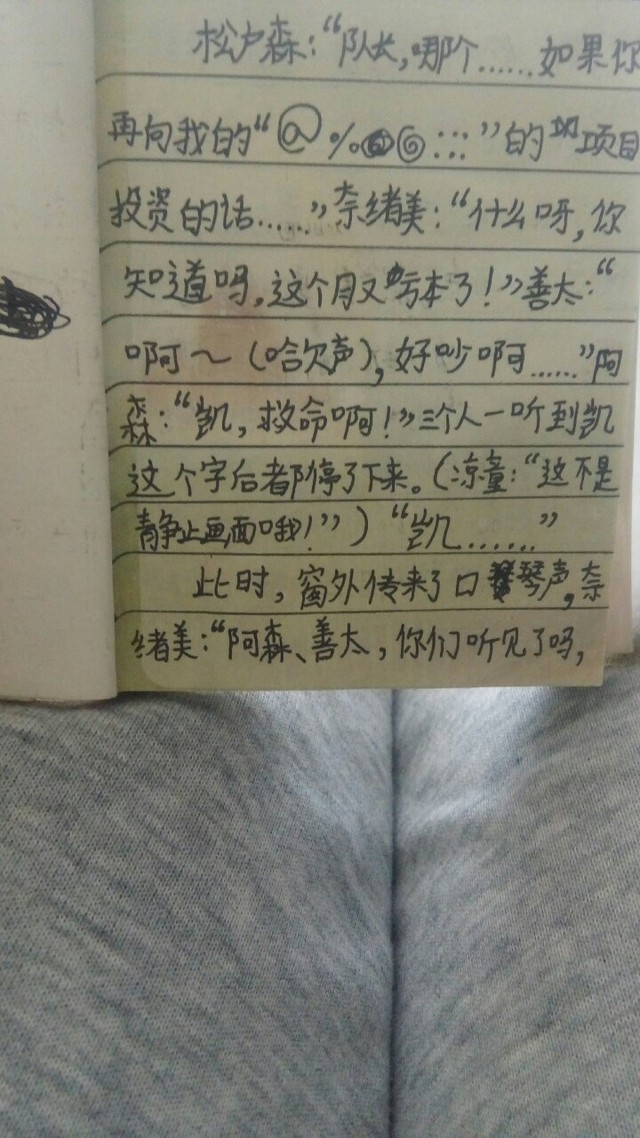 松户森：“队长，哪个……如果你
再向我的“@%@@:::”的项目
投资的话……”奈绪美：“什么呀，你
知道吗，这个月又亏本了！”善太：“
啊～（哈欠声），好吵啊……”阿
森：“凯，救命啊！”三个人一听到凯
这个字后都停了下来。（凉童：“这不是
静止画面哦！”）“凯……”
此时，窗外传来了口琴声，奈
绪美：“阿森、善太，你们听见了吗，